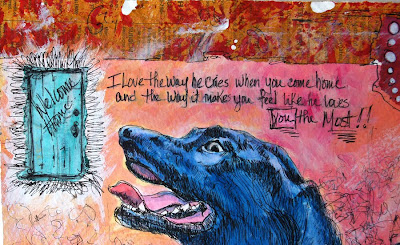 Welcome
Home
I Love the way he cries when you come home
and the way it make you feel like he loves
You (the Most!!